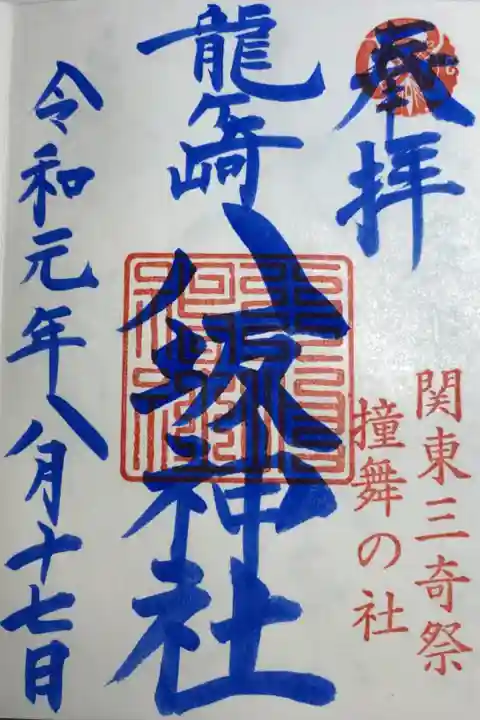 奉拝
関東三奇祭
撞舞の社
龍ヶ崎
八坂神社
令和元年八月十七日